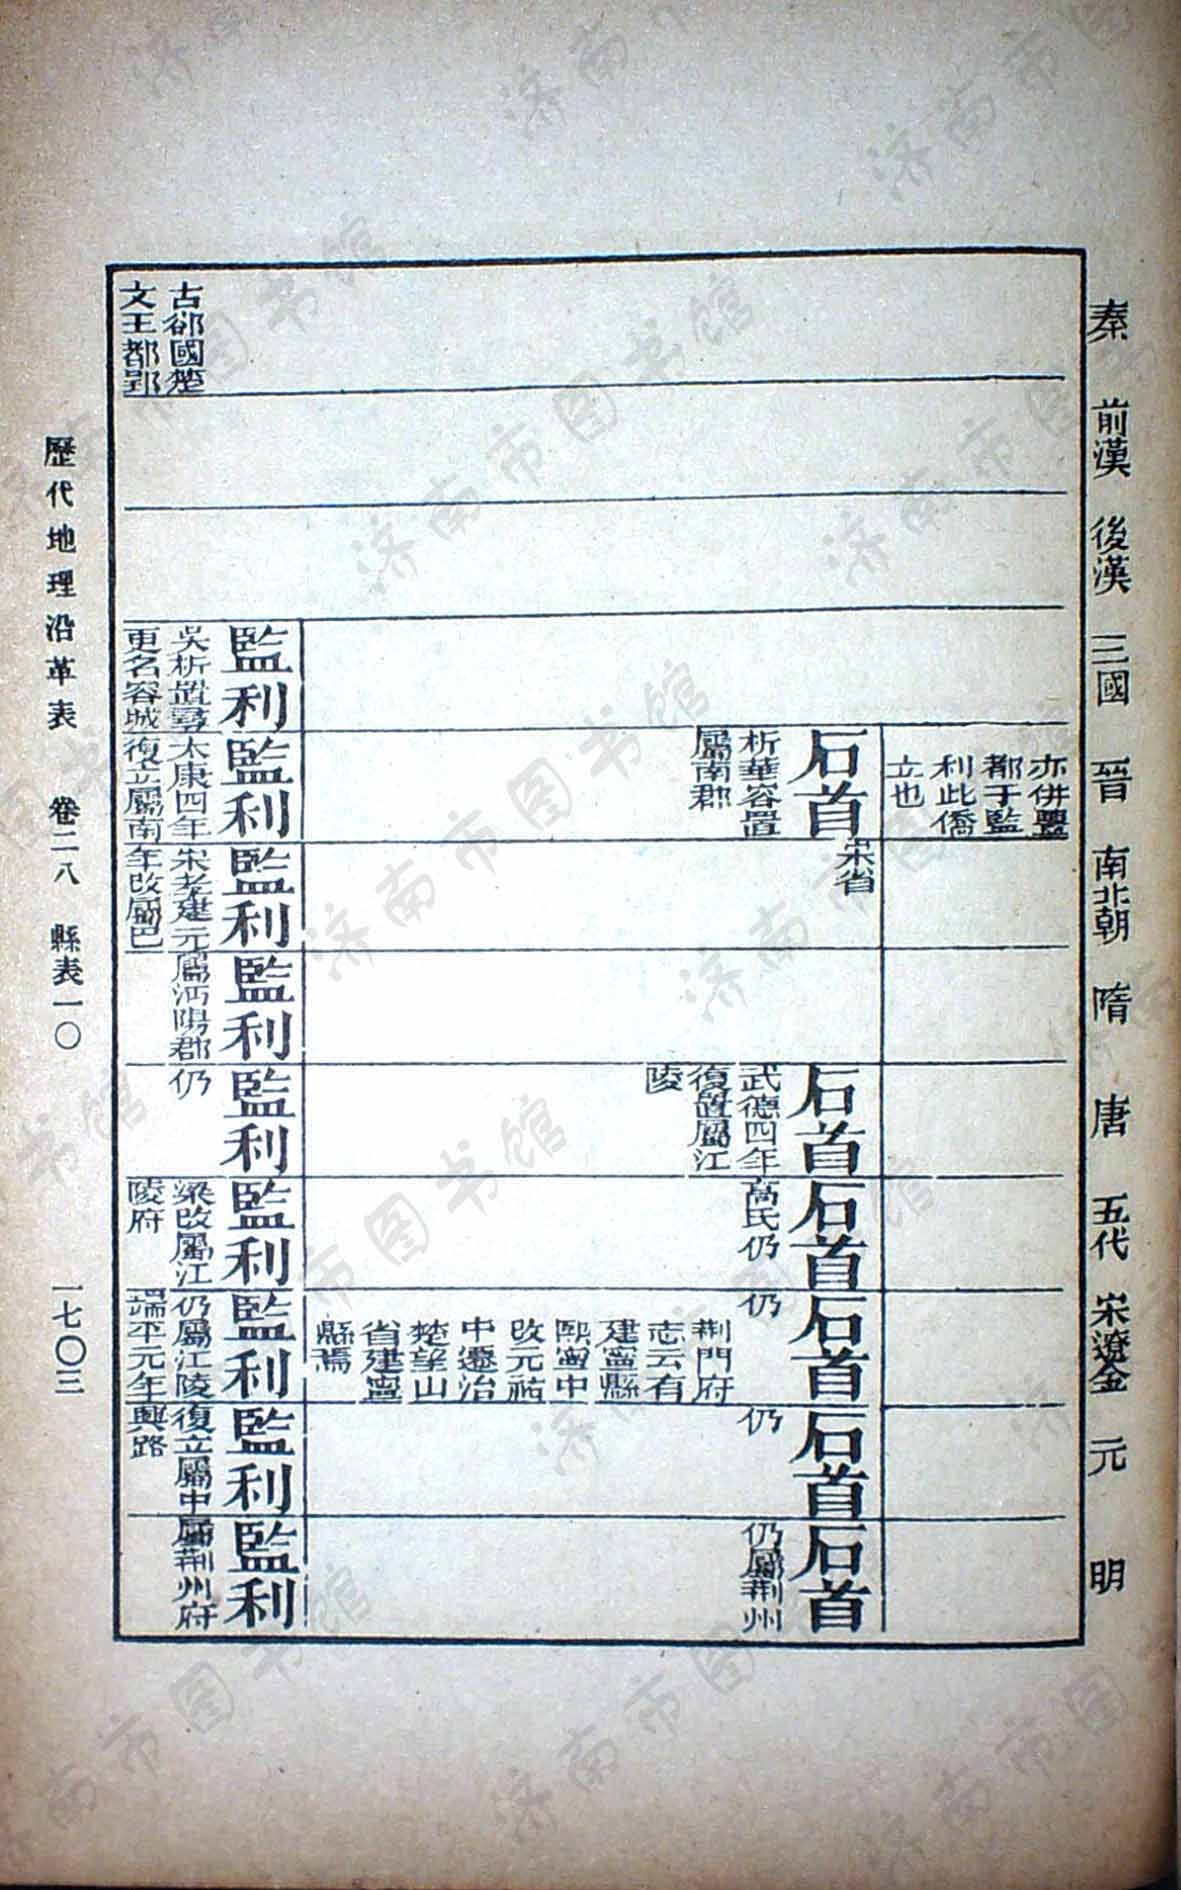 秦 前漢 後漢 三國 晉 南北朝 隋 唐 五代 宋遼金 元 明
亦併豐
都于監
利此僑
立也
石首
析華容置
屬南郡
宋省
石首
武德四年
復置屬江
陵
石首
高氏仍
石首
仍
荆門府
志云有
建寧縣
熙寧中
改元祐
中遷治
楚望山
省建寧
縣焉
石首
仍
石首
仍屬荆州
監利
吳析置尋
更名容城
監利
太康四年
復立屬南
監利
宋孝建元
年改屬巴
監利
屬沔陽郡
監利
仍
監利
梁改屬江
陵府
監利
仍屬江陵
端平元年
監利
復立屬中
興路
監利
屬荆州府
古郤國楚
文王都郢
歷代地理沿革表 卷二八 縣表一〇 一七〇三
济南市图书馆